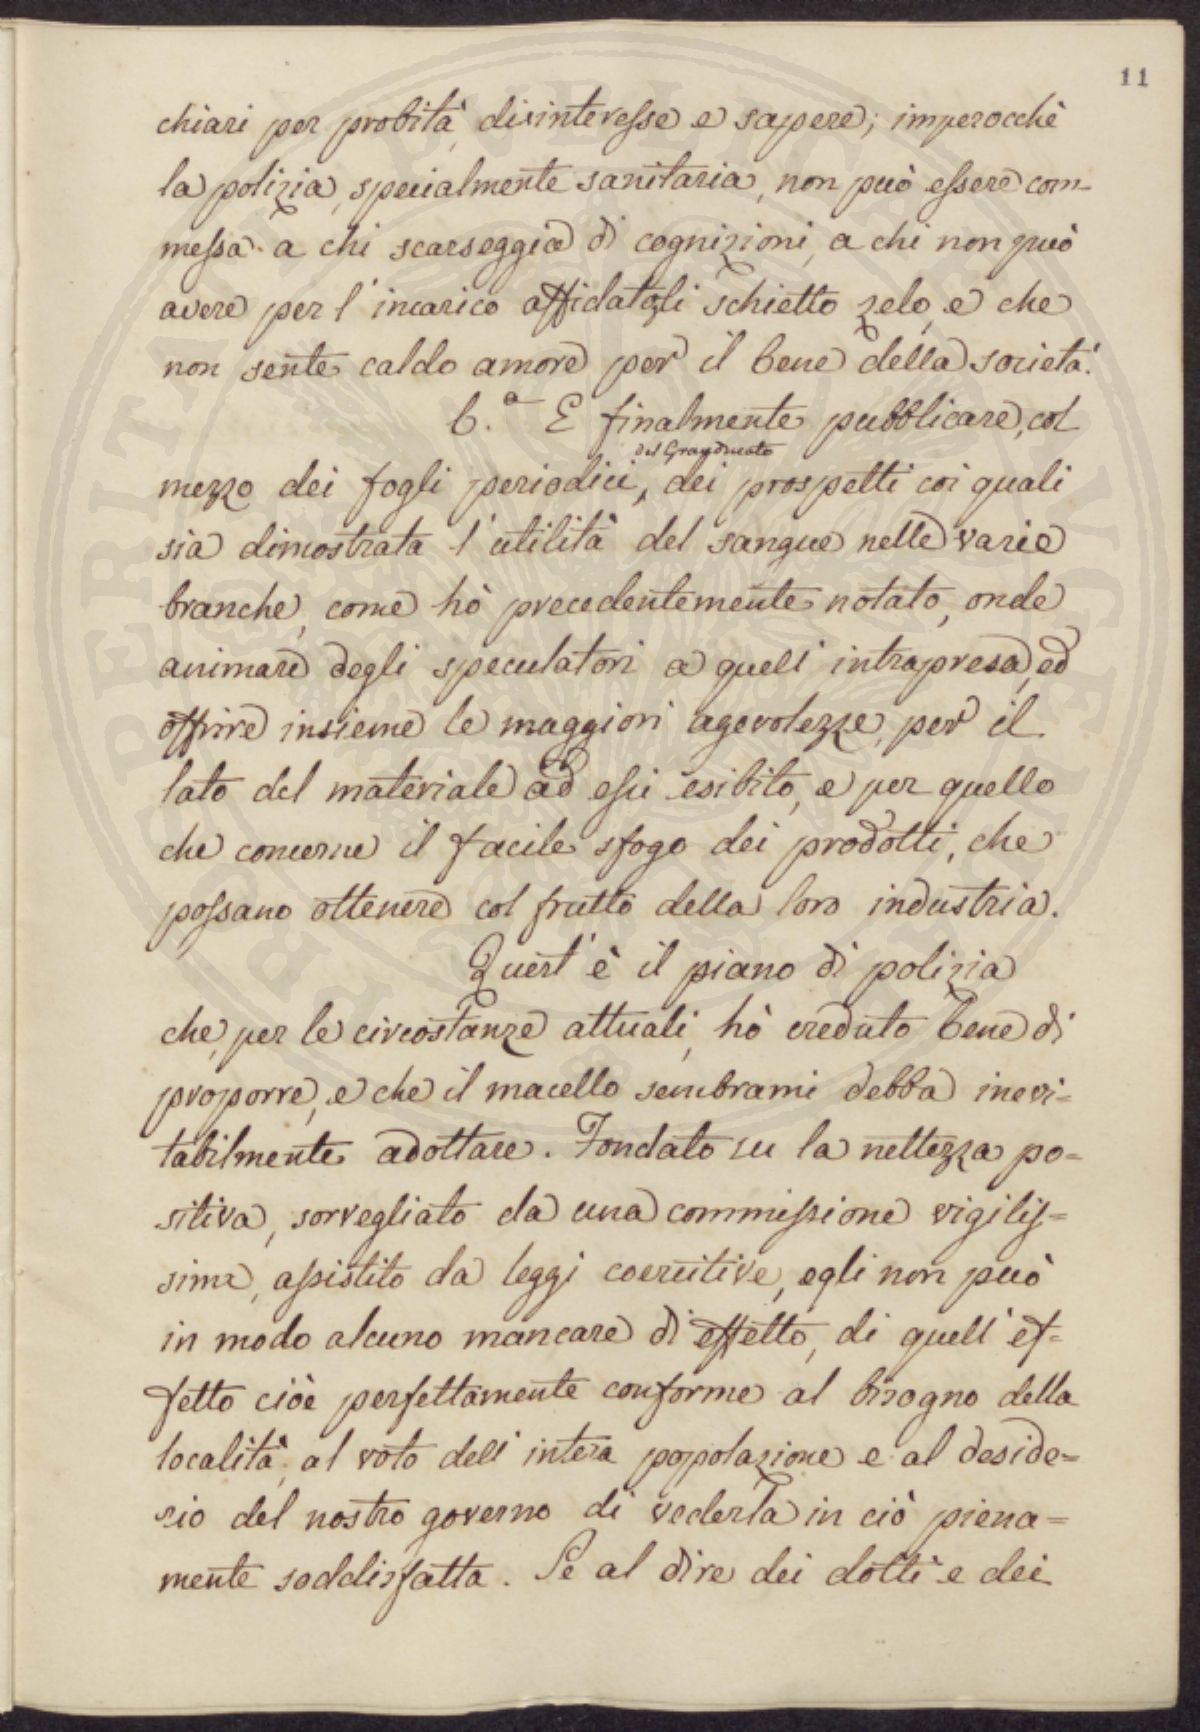 11
chiari per probità, disinteresse e sapere; imperocchè
la polizia, specialmente sanitaria, non può essere com-
messa a chi scarseggia di cognizioni, a chi non può
avere per l'incarico affidatogli schietto zelo, e che
non sente caldo amore per il bene della società.
6.a E finalmente pubblicare, col
del Granducato
mezzo dei fogli periodici, dei prospetti coi quali
sia dimostrata l'utilità del sangue nelle varie
branche, come hò precedentemente notato, onde
animare degli speculatori a quell'intrapresa, ed
offrire insieme le maggiori agevolezze, per il
lato del materiale ad essi esibito, e per quello
che concerne il facile sfogo dei prodotti, che
possano ottenere col frutto della loro industria.
Quest'è il piano di polizia
che, per le circostanze attuali, hò creduto bene di
proporre, e che il macello sembrami debba inevi=
tabilmente adottare. Fondato su la nettezza po=
sitiva, sorvegliato da una commissione vigilis=
sima, assistito da leggi coercitive, egli non può
in modo alcuno mancare di effetto, di quell'ef=
fetto cioè perfettamente conforme al bisogno della
località, al voto dell'intera popolazione e al deside=
rio del nostro governo di vederla in ciò piena=
mente soddisfatta. Se al dire dei dotti e dei
PERITIA PVBLICAE